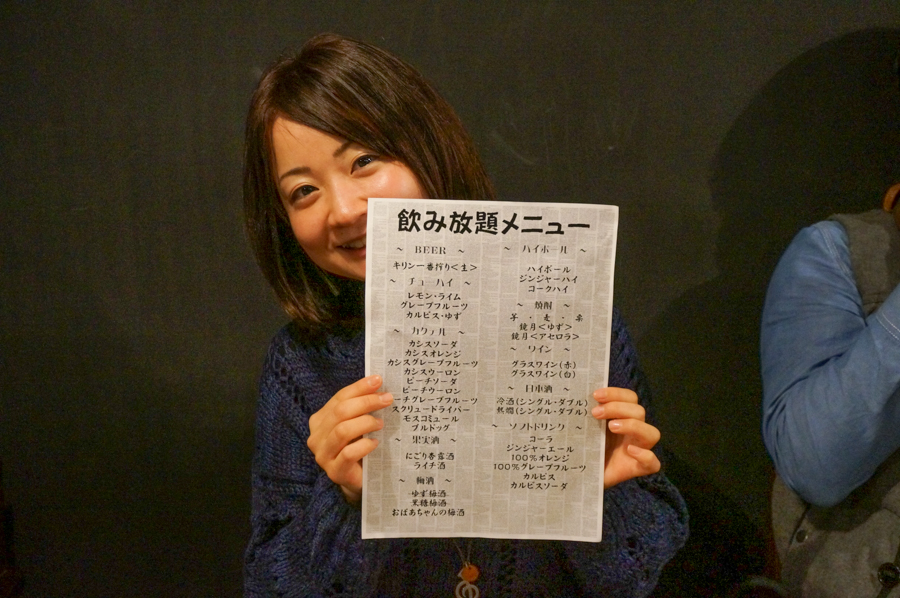 飲み放題メニュー
～ BEER ～
キリン一番搾り<生>
～ チューハイ ～
レモン・ライム
グレープフルーツ
カルピス・ゆず
～ カクテル ～
カシスソーダ
カシスオレンジ
カシスグレープフルーツ
カシスウーロン
ピーチソーダ
ピーチウーロン
ーチグレープフルーツ
スクリュードライバー
モスコミュール
ブルドッグ
～ 果実酒 ～
にごり杏露酒
ライチ酒
～ 梅酒 ～
ゆず梅酒
黒糖梅酒
おばあちゃんの梅酒
～ ハイボール ～
ハイボール
ジンジャーハイ
コークハイ
～ 焼酎 ～
芋 ・ 麦 ・ 米
鏡月<ゆず>
鏡月<アセロラ>
～ ワイン ～
グラスワイン(赤)
グラスワイン(白)
～ 日本酒 ～
冷酒(シングル・ダブル)
熱燗(シングル・ダブル)
～ ソフトドリンク ～
コーラ
ジンジャーエール
100%オレンジ
100%グレープフルーツ
カルピス
カルピスソーダ